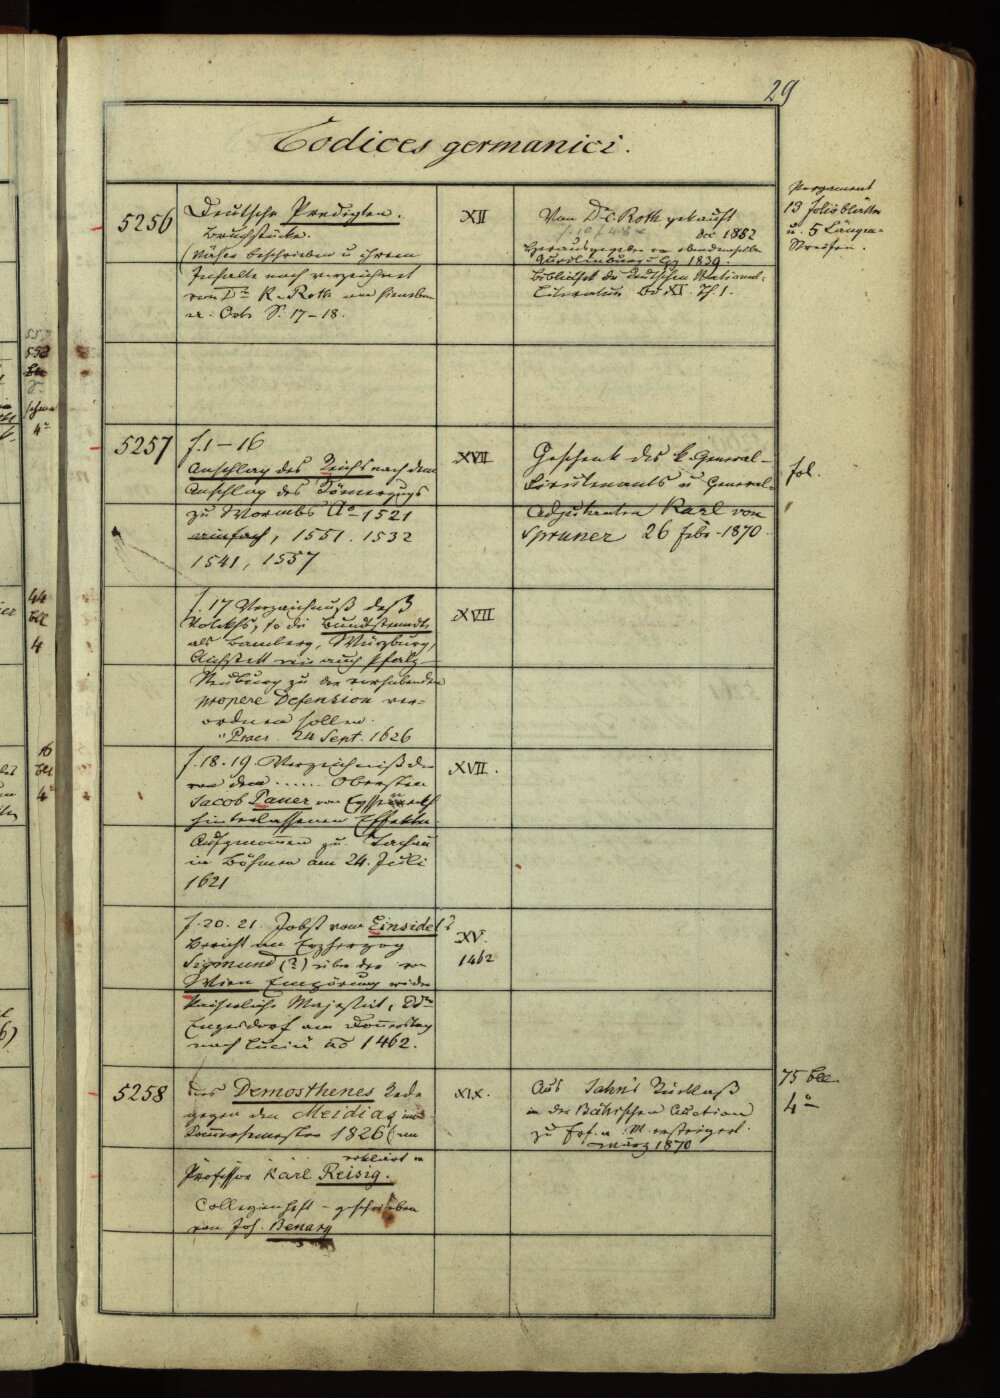 29
Codices germanici.
5256
Deutsche Predigten.
Bruchstücke.
(Näher beschrieben u ihrem
Inhalte nach verzeichnet
von Dr K. Roth
S. 17–18.
XII
Von Dr C. Roth gekauft
1882
Herausgegeben von ebendemselben
Quedlinburg u Lpz 1839.
Bibliothek der deutschen National-
Literatur Bd XI. Th 1.
Pergament
13 Folioblätter
u. 5 Längen-
Streifen.
5257
f. 1–16
Anschlag des Reichs nach dem
Anschlag des Römerzugs
zu Wormbs Ao 1521
einfach, 1551. 1532
1541, 1557
XVII
Geschenk des k. General-
Lieutenants u General-
Adjutanten Karl von
Spruner 26 Febr. 1870.
fol.
f. 17 Verzeichnuß deß
Volckhs, so die Bundtstendt
als Bamberg, Würzburg,
Aichstett wie auch Pfalz-
Neuburg zu der vorhabenden
propere Defension ver-
ordnen sollen.
Praes. 24 Sept. 1626
XVII
f. 18. 19. Verzeichniß der
von dem ...... Obersten
Jacob Paner von
hinterlassenen Effekten
Aufgenommen zu Tachau
in Böhmen am 24. Juli
1621
XVII.
f. 20. 21. Jobst vom Einsidel
Bericht an Erzherzog
Sigmund (?) über der von
Wien Empörung wider
kaiserliche Majestät,
Enzersdorf am Donnerstag
nach Luciä ao 1462.
XV.
1462
5258
des Demosthenes Rede
gegen den Meidias im
Sommersemester 1826 (von
erklärt v
Professor Karl Reisig.
Collegienheft – geschrieben
von Joh. Benary
XIX.
Aus Jahn's Nachlaß
in der Bährschen Auction
zu Frkf. a M. ersteigert.
März 1870
75 Bll.
4o